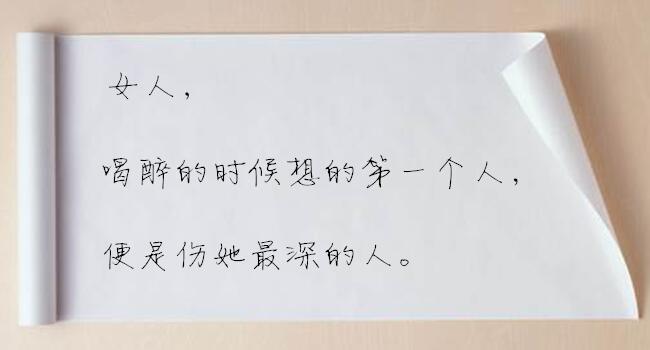 女人，
喝醉的时候想的第一个人，
便是伤她最深的人。